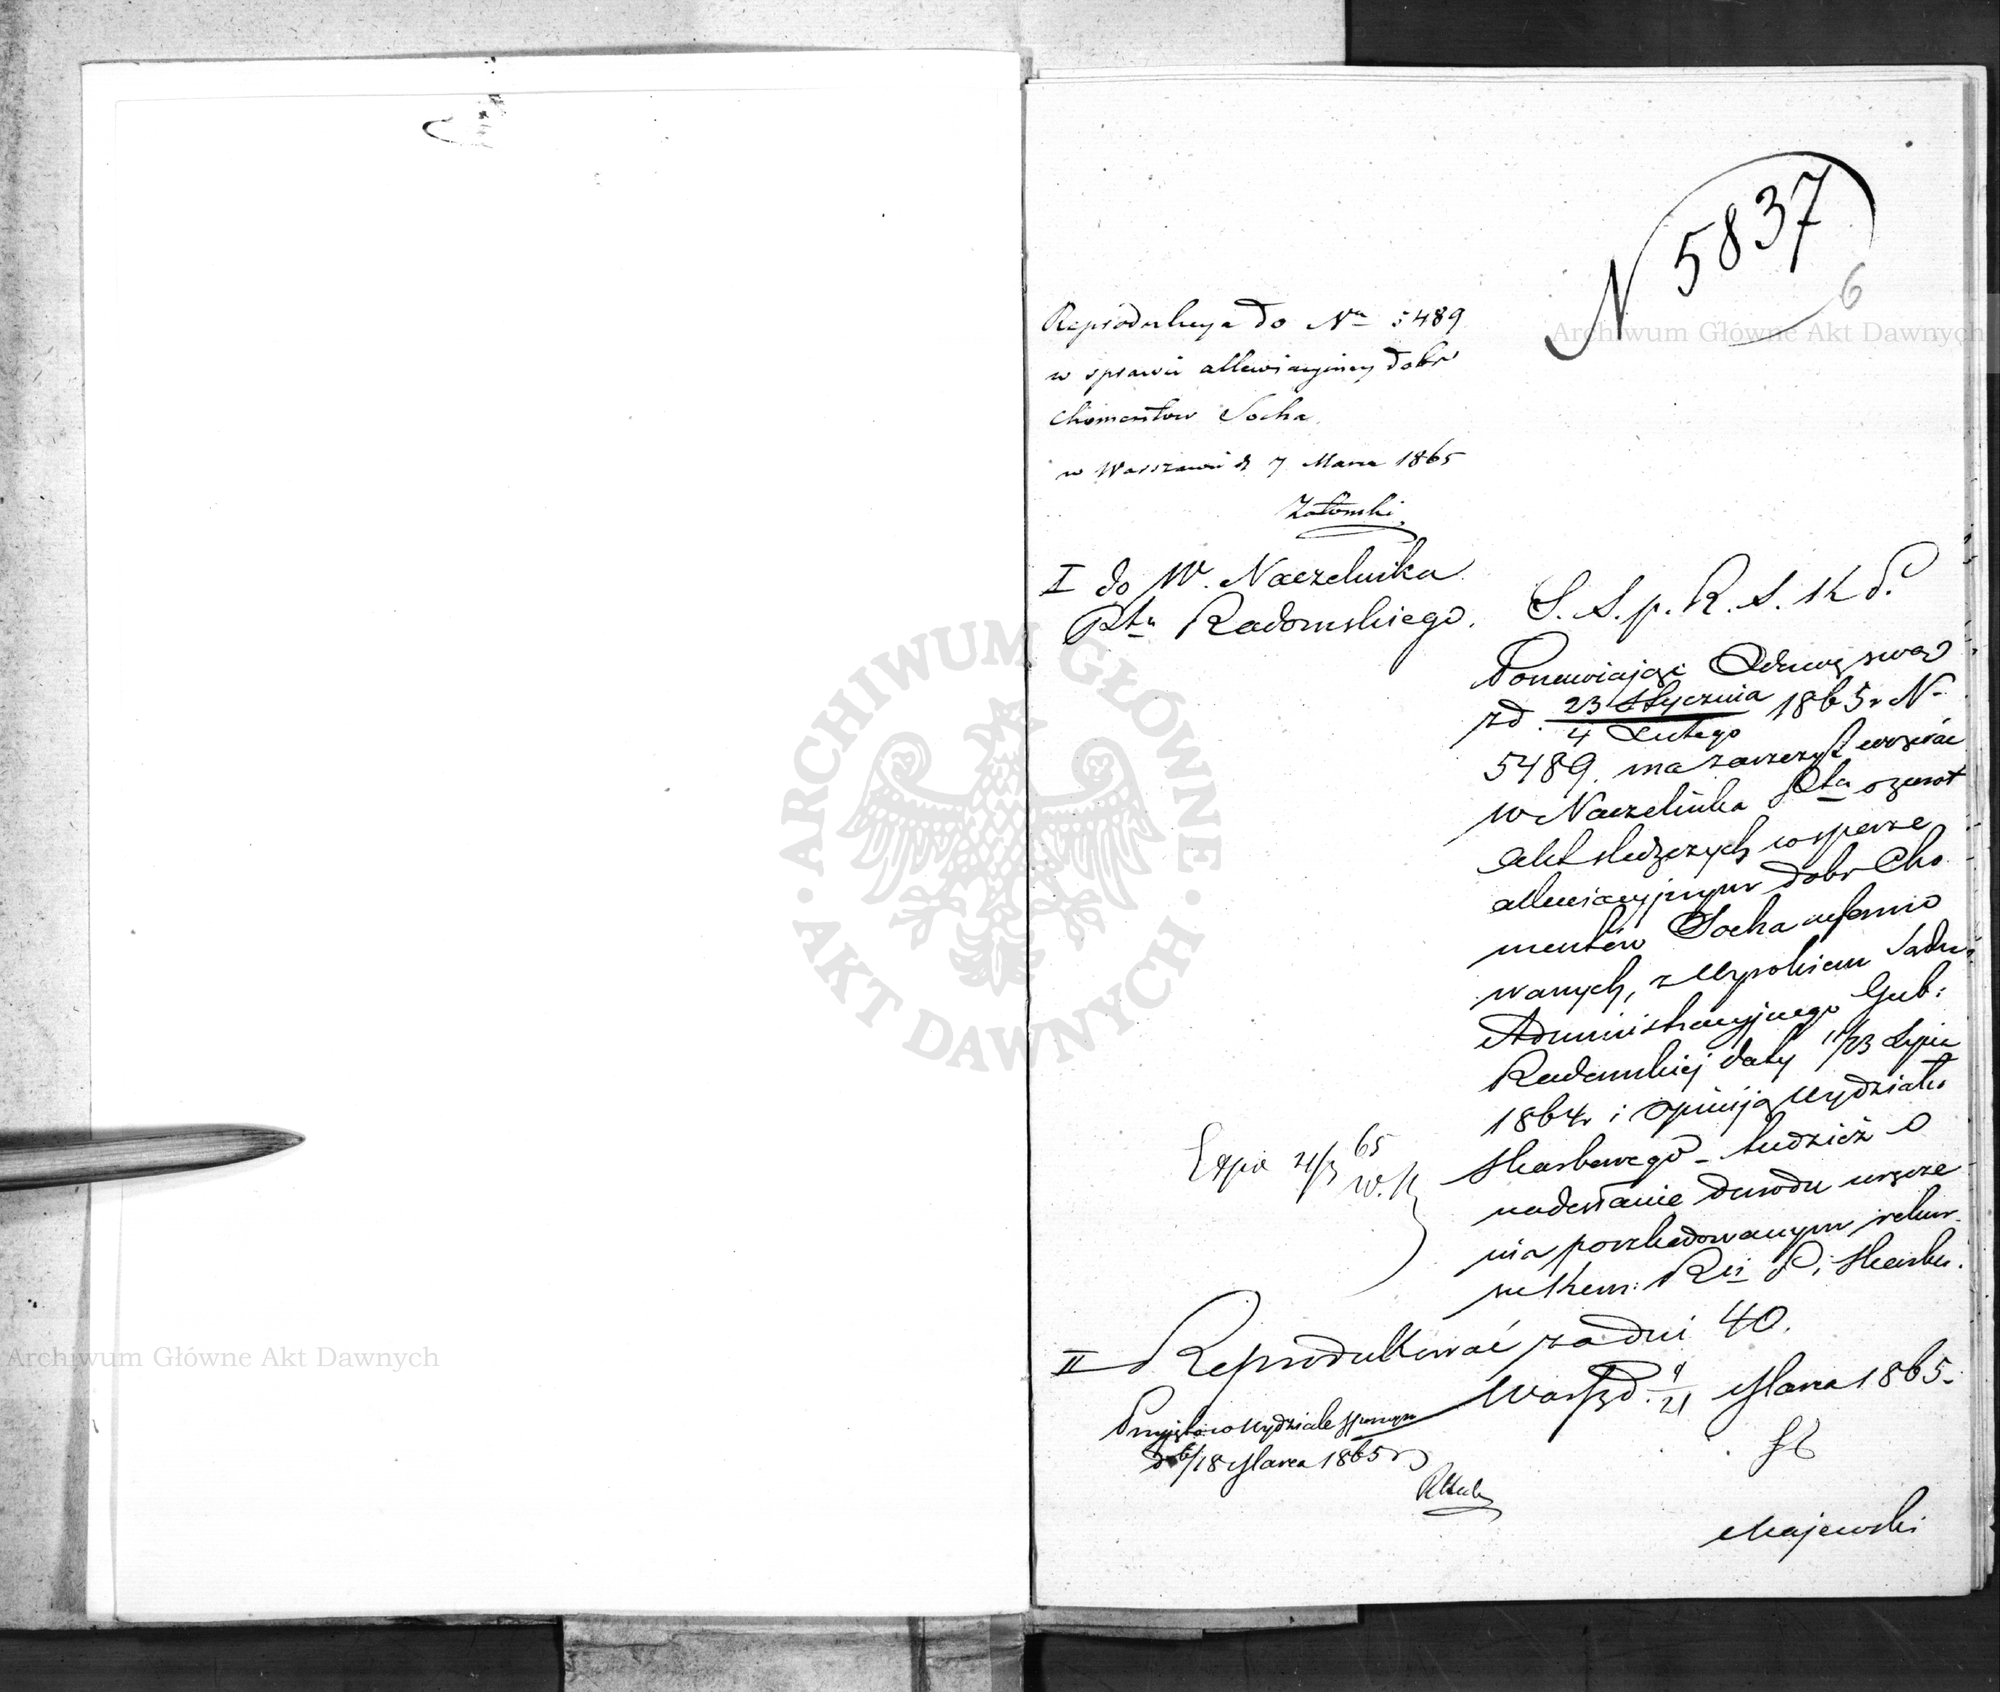 N 5837
6
Reprodukcya do Nru 5489
w sprawie allewiacyjnej dobr
Chomentow Socha
w Warszawie d 7 Marca 1865
Załomski
I do W. Naczelnika
Ptu Radomskiego.
S. S. p. R. S. K d.
Ponawiając Odezwę swą
z d. 23 Stycznia / 4 Lutego 1865 r N
5489. ma zaszczyt wezwać
W Naczelnika Ptu o zwrot
akt służących w sporze
allewiacyjnym dobr Cho
mentów Socha uformo
wanych, z Wyrokiem Sądu
Administracyjnego Gub:
Radomskiej daty 11/23 Lipca
1864 r i opinją Wydziału
Skarbowego – tudzież o
nadesłanie dowodu wręcze
nia poszkodowanym rekur
su Kom: Rii P. i Skarbu.
Exp 21/3 65
W. K
II Reprodukować za dni 40.
Warsz d. 9/21 Marca 1865.
Przyjęto w Wydziale Spornym
d 6/18 Marca 1865 r
Majewski
Archiwum Główne Akt Dawnych
Archiwum Główne Akt Dawnych
ARCHIWUM GŁÓWNE · AKT DAWNYCH ·